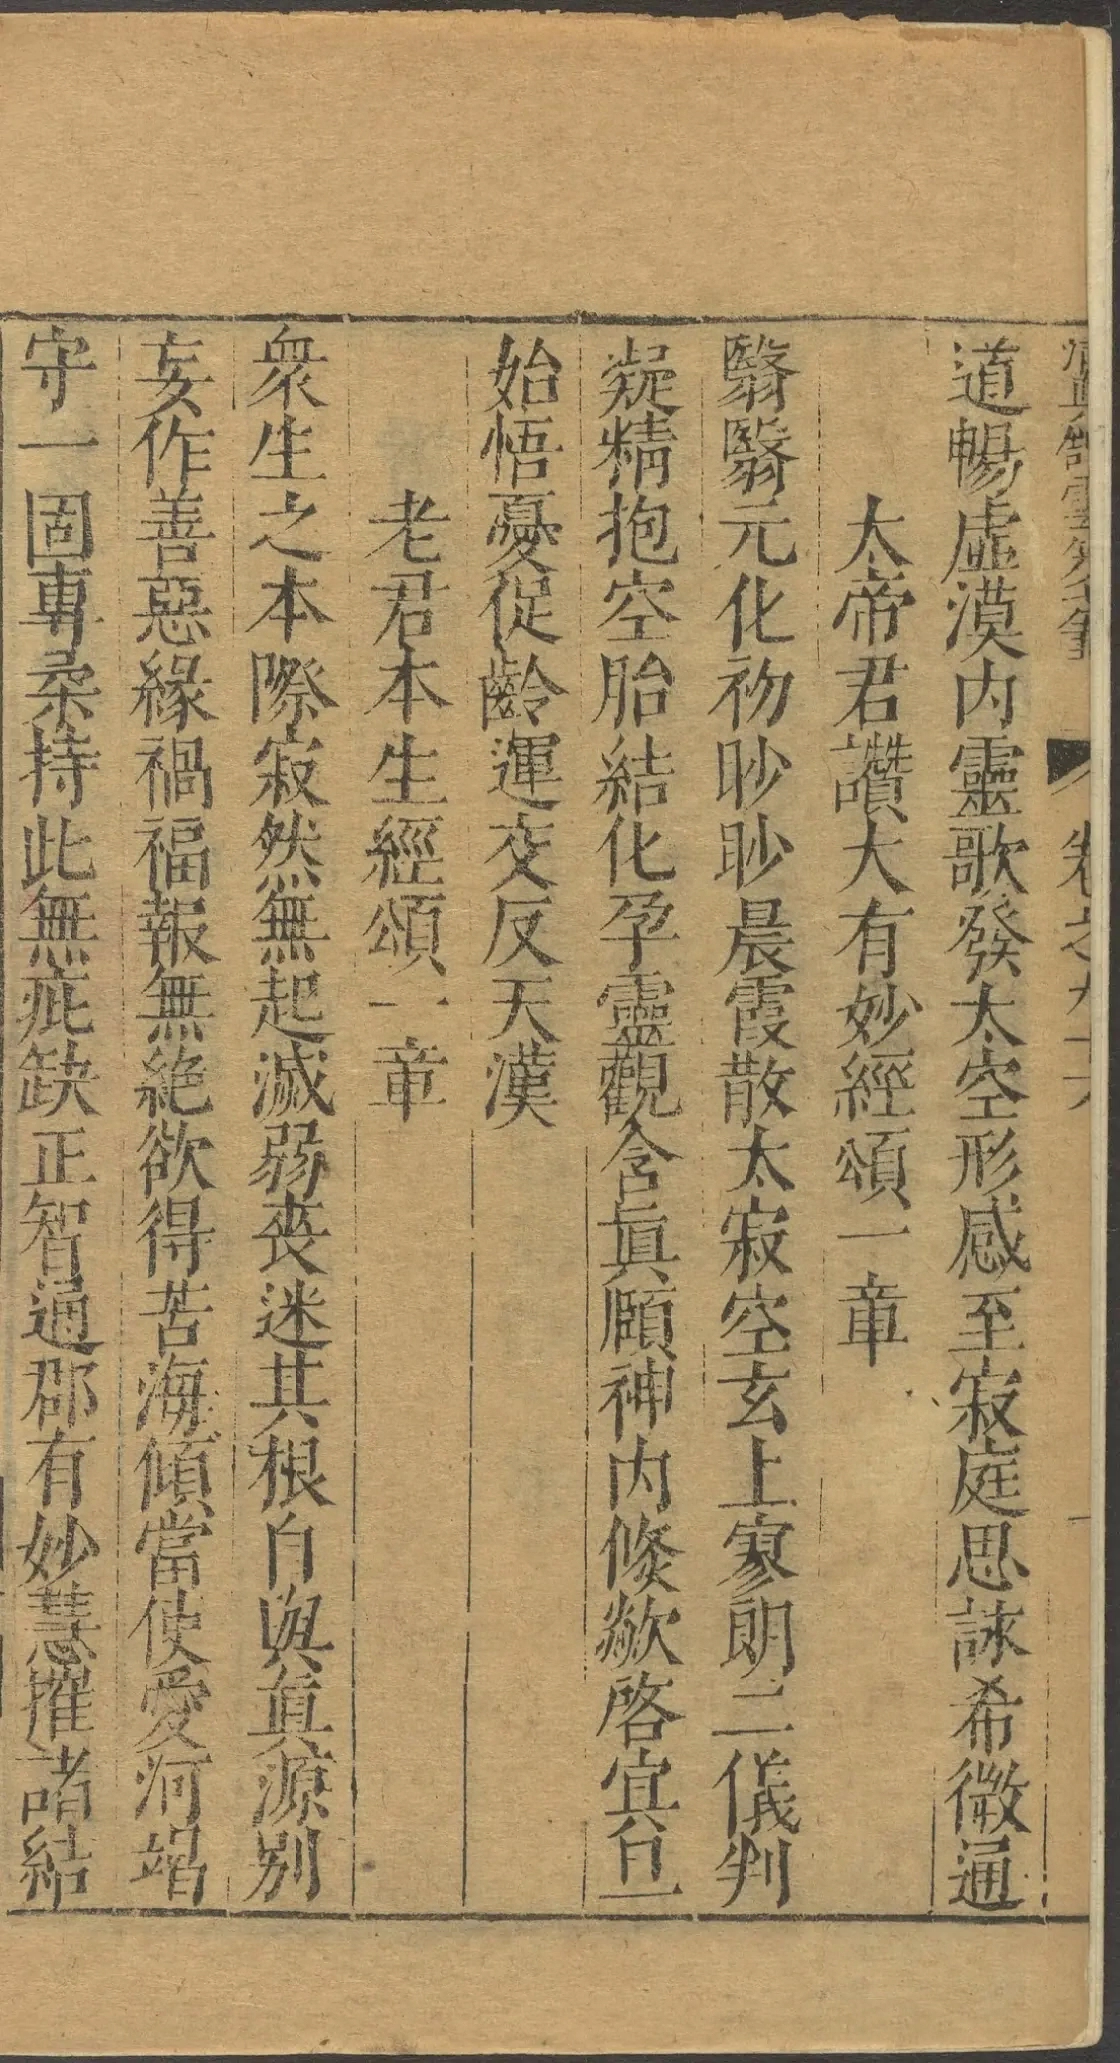 卷之九十六
道暢虛漠內靈歌發太空形感至寂庭思詠希微通
太帝君讚大有妙經頌一章
翳翳元化初眇眇晨霞散太寂空玄上寥朗二儀判
凝精抱空胎結化孕靈觀含眞頤神內倏欻啓冥旦
始悟憂促齡運交反天漢
老君本生經頌一章
衆生之本際寂然無起滅弱喪迷其根自與眞源別
妄作善惡緣禍福報無絕欲得苦海傾當使愛河竭
守一固專柔持此無疵缺正智通群有妙慧摧諸結